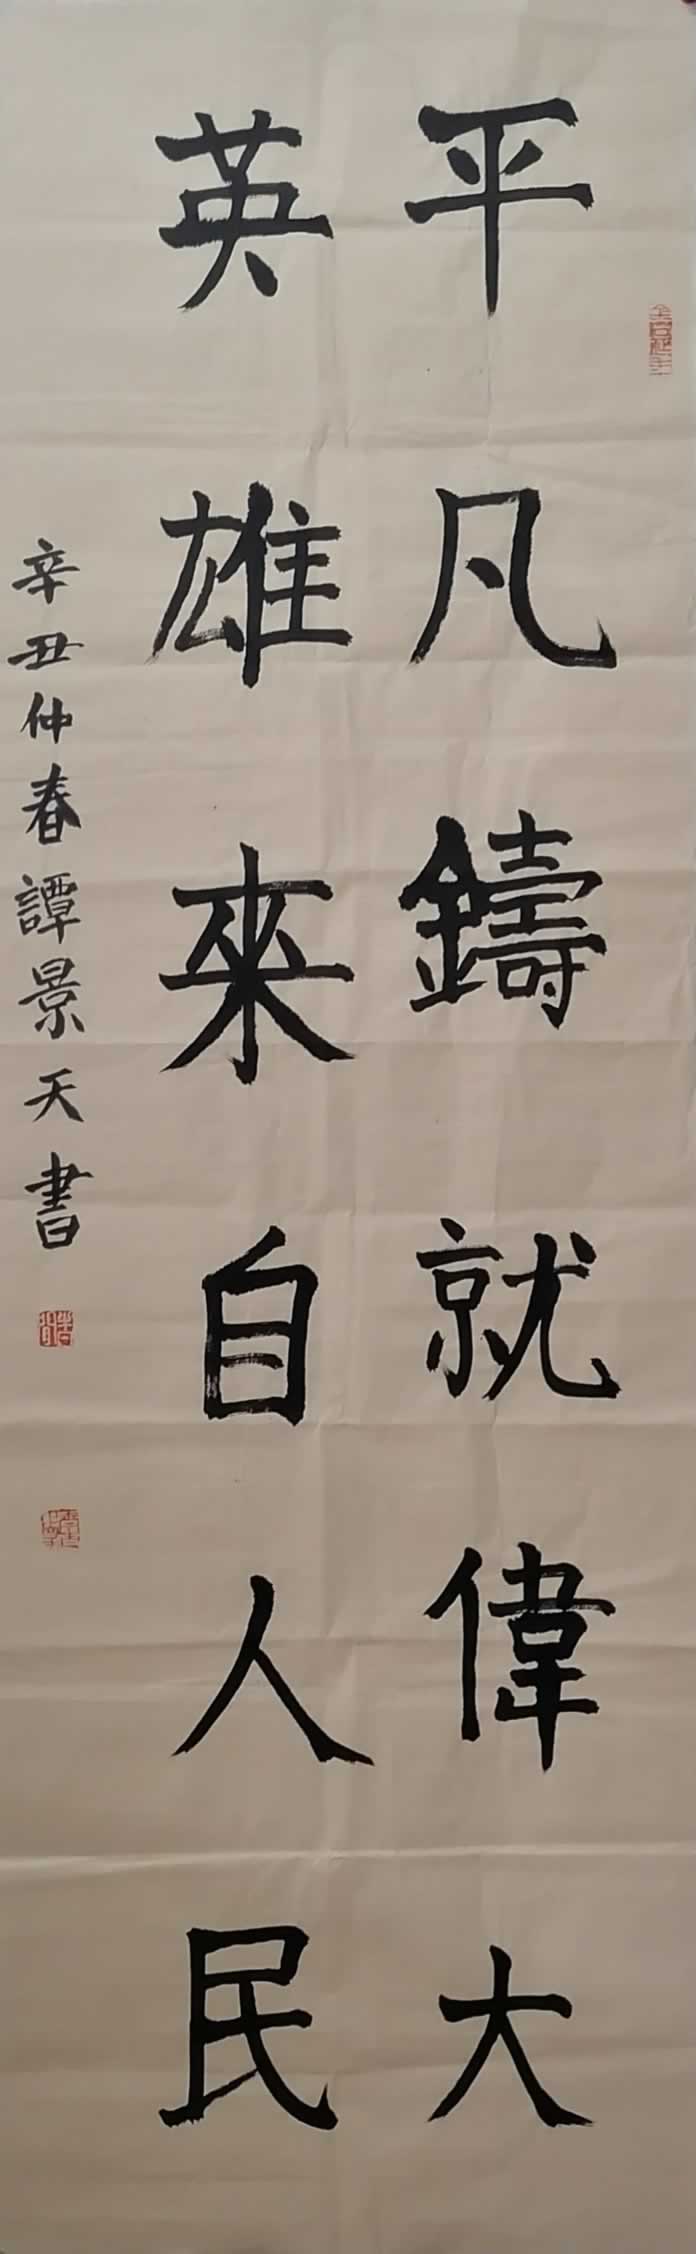 平凡鑄就偉大
英雄來自人民
辛丑仲春譚景天書